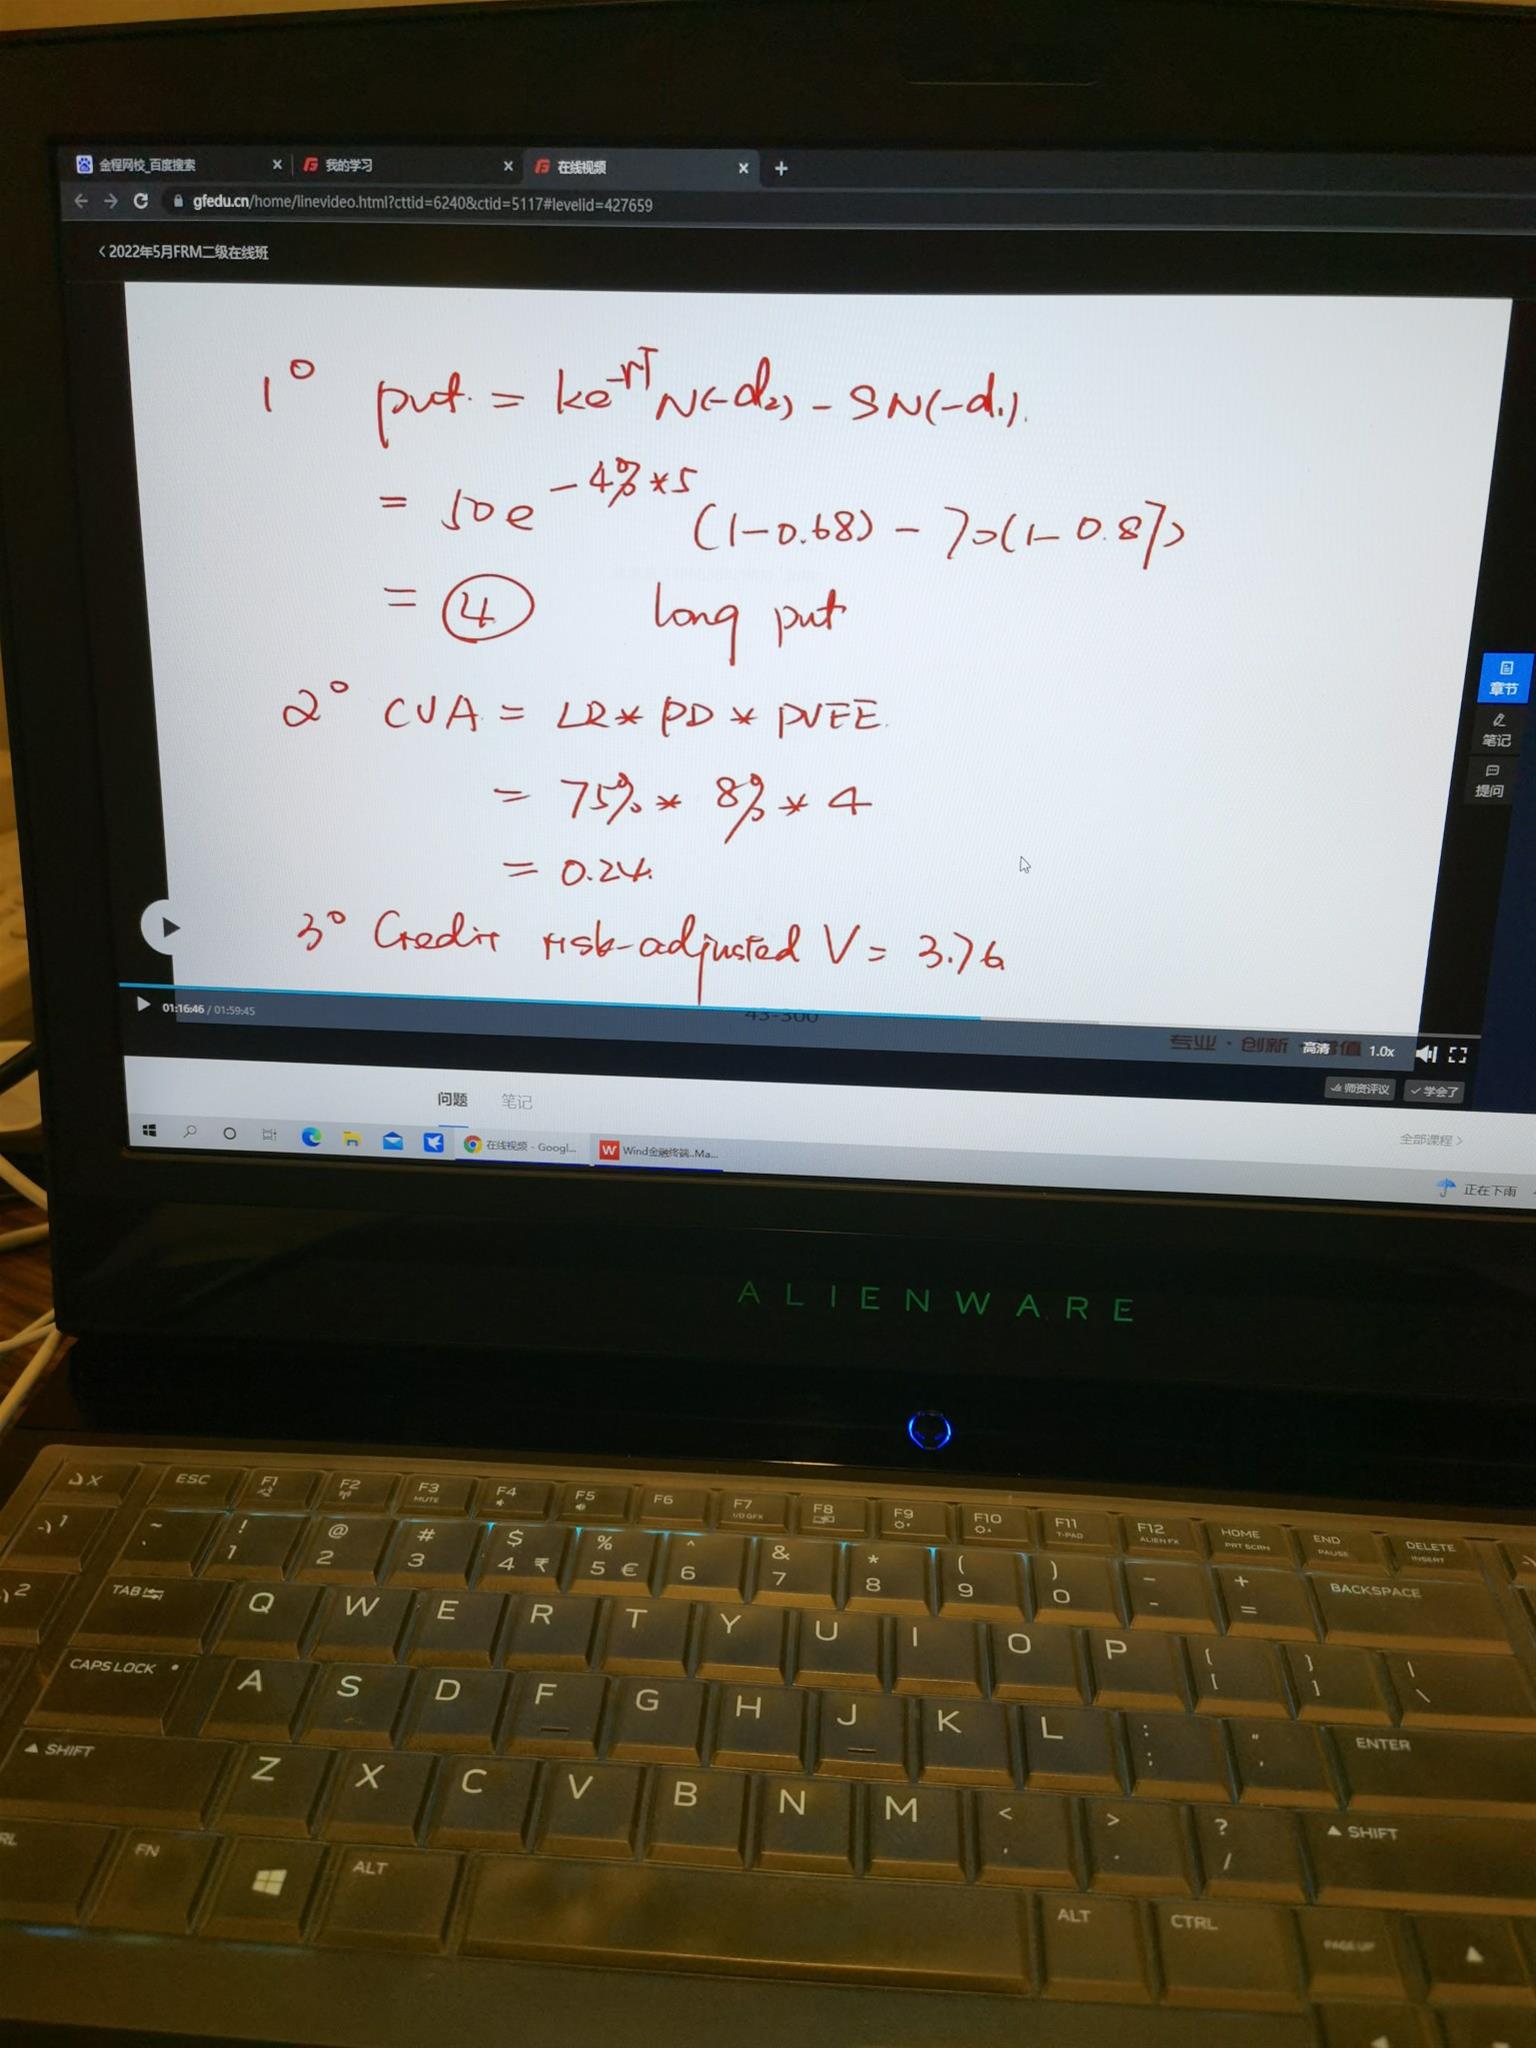 金程网校_百度搜索 × 我的学习 × 在线视频 × +
gfedu.cn/home/linevideo.html?cttid=6240&ctid=5117#levelid=427659
< 2022年5月FRM二级在线班
1° put = ke^-rT N(-d2) - SN(-d1).
= 50e^-4%*5 (1-0.68) - 70(1-0.87)
= 4 long put
2° CVA = LR * PD * PVEE.
= 75% * 8% * 4
= 0.24.
3° Credit risk-adjusted V = 3.76
章节
笔记
提问
43-300
01:16:46 / 01:59:45
专业·创新·增值
高清 1.0x
师资评议 学会了
问题 笔记
全部课程 >
在线视频 - Googl...
Wind金融终端..Ma...
正在下雨
ALIENWARE
ESC F1 F2 F3 MUTE F4 F5 F6 F7 I/D GFX F8 F9 F10 F11 T-PAD F12 ALIEN FX HOME PRT SCRN END PAUSE DELETE INSERT
~ ` ! 1 @ 2 # 3 $ 4 ₹ % 5 € ^ 6 & 7 * 8 ( 9 ) 0 _ - + = BACKSPACE
TAB Q W E R T Y U I O P { [ } ] | \
CAPS LOCK A S D F G H J K L : ; " ' ENTER
SHIFT Z X C V B N M < , > . ? / SHIFT
FN ALT ALT CTRL PAGE UP